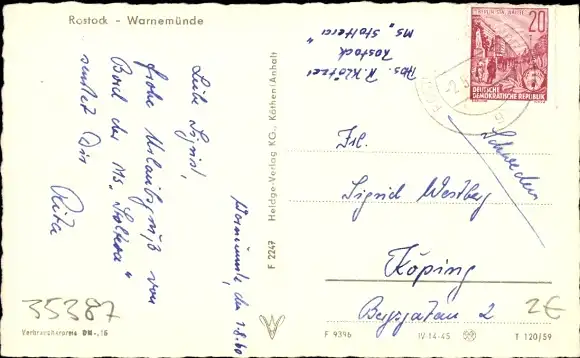 Rostock - Warnemünde
Liebe Sigrid,
frohe Urlaubsgrüße von
Bord der MS. "Stoltera"
sendet Dir
Rita
Warnemünde, den 1.8.60
35387
Verbraucherpreis DM -,15
F 2247 Heldge-Verlag KG., Köthen/Anhalt
Abs. R. Klötzer
Rostock
MS. "Stoltera"
20
DEUTSCHE
DEMOKRATISCHE REPUBLIK
Frl.
Sigrid Westberg
Köping
Bergsgatan 2
Schweden
2€
F 9396
IV-14-45
T 120/59